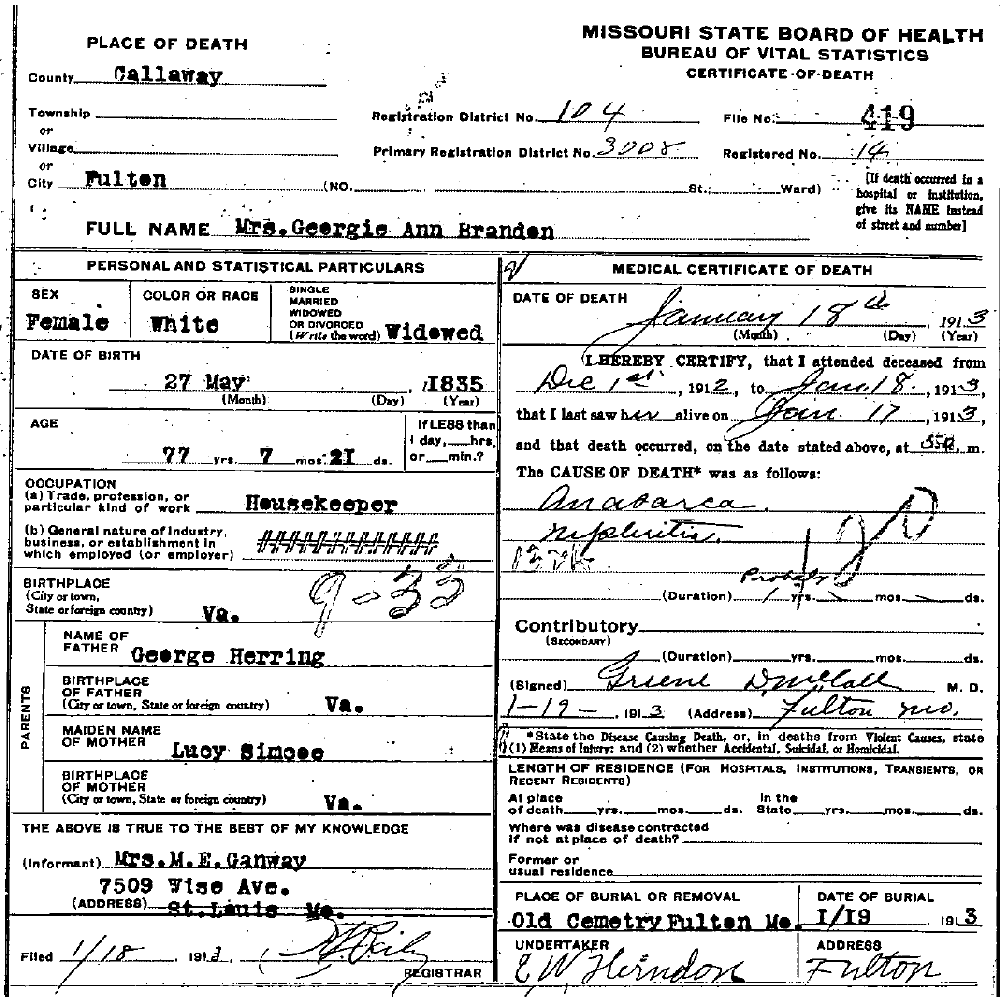 MISSOURI STATE BOARD OF HEALTH
BUREAU OF VITAL STATISTICS
CERTIFICATE OF DEATH
PLACE OF DEATH
County Callaway
Township
or
Village
or
City Fulton (NO. St.; Ward)
Registration District No. 104 File No. 419
Primary Registration District No. 3008 Registered No. 14
[If death occurred in a
hospital or institution,
give its NAME instead
of street and number]
FULL NAME Mrs.Georgie Ann Brandon
PERSONAL AND STATISTICAL PARTICULARS
SEX
Female
COLOR OR RACE
White
SINGLE
MARRIED
WIDOWED
OR DIVORCED
(Write the word) Widowed
DATE OF BIRTH
27 May , 1835
(Month) (Day) (Year)
AGE
77 yrs. 7 mos. 21 ds.
If LESS than
1 day, hrs.
or min.?
OCCUPATION
(a) Trade, profession, or
particular kind of work Housekeeper
(b) General nature of industry,
business, or establishment in
which employed (or employer)
9-33
BIRTHPLACE
(City or town,
State or foreign country) Va.
PARENTS
NAME OF
FATHER George Herring
BIRTHPLACE
OF FATHER
(City or town, State or foreign country) Va.
MAIDEN NAME
OF MOTHER Lucy Simcoe
BIRTHPLACE
OF MOTHER
(City or town, State or foreign country) Va.
THE ABOVE IS TRUE TO THE BEST OF MY KNOWLEDGE
(Informant) Mrs.M.E.Ganway
7509 Wise Ave.
(ADDRESS) St.Louis Mo.
Filed 1/18 1913
REGISTRAR
MEDICAL CERTIFICATE OF DEATH
DATE OF DEATH
January 18th 1913
(Month) (Day) (Year)
I HEREBY CERTIFY, that I attended deceased from
Dec 1st, 1912, to Jan. 18, 1913,
that I last saw her alive on Jan. 17, 1913,
and that death occurred, on the date stated above, at m.
The CAUSE OF DEATH* was as follows:
Anasarca.
Nephritis.
120
Probably
(Duration) 1 yrs. mos. ds.
Contributory
(SECONDARY)
(Duration) yrs. mos. ds.
(Signed) Greene D. McCall M. D.
1-19-, 1913 (Address) Fulton Mo.
*State the Disease Causing Death, or, in deaths from Violent Causes, state
(1) Means of Injury; and (2) whether Accidental, Suicidal, or Homicidal.
LENGTH OF RESIDENCE (FOR HOSPITALS, INSTITUTIONS, TRANSIENTS, OR
RECENT RESIDENTS)
At place
of death yrs. mos. ds.
In the
State yrs. mos. ds.
Where was disease contracted
if not at place of death?
Former or
usual residence
PLACE OF BURIAL OR REMOVAL
Old Cemetry Fulton Mo.
DATE OF BURIAL
1/19 1913
UNDERTAKER
E W Herndon
ADDRESS
Fulton